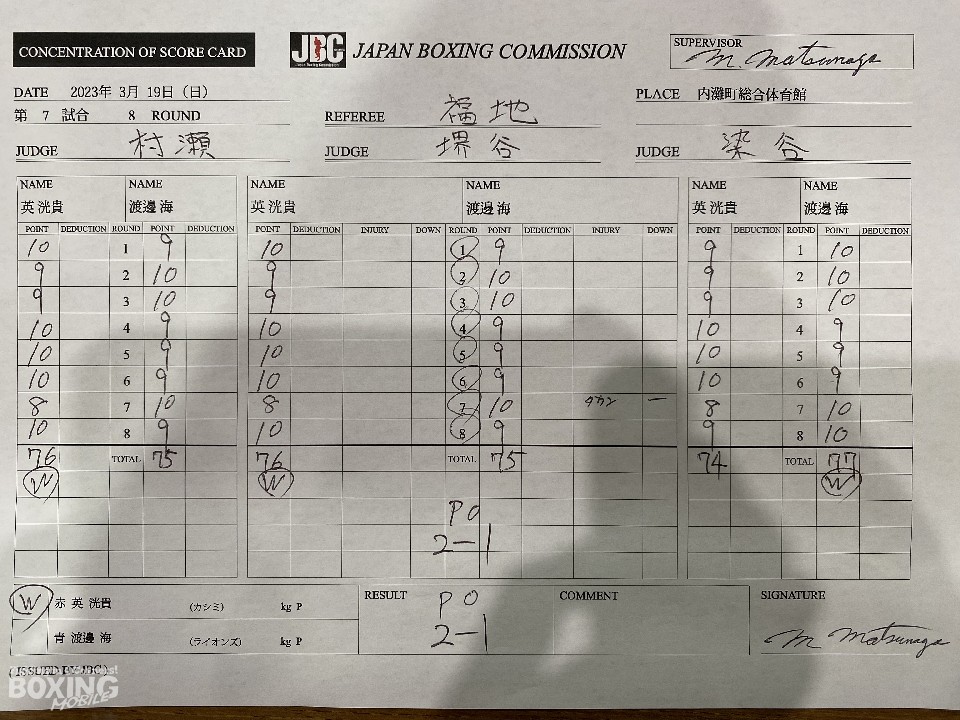 CONCENTRATION OF SCORE CARD
JBC JAPAN BOXING COMMISSION
SUPERVISOR M. Matsunaga
DATE 2023年 3月 19日 (日)
PLACE 内灘町総合体育館
第 7 試合 8 ROUND
REFEREE 福地
JUDGE 村瀬 JUDGE 堺谷 JUDGE 染谷
NAME NAME NAME NAME NAME NAME
英 洸貴 渡邉 海 英 洸貴 渡邉 海 英 洸貴 渡邉 海
POINT DEDUCTION ROUND POINT DEDUCTION POINT DEDUCTION INJURY DOWN ROUND POINT DEDUCTION INJURY DOWN POINT DEDUCTION ROUND POINT DEDUCTION
10 1 9 10 1 9 9 1 10
9 2 10 9 2 10 9 2 10
9 3 10 9 3 10 9 3 10
10 4 9 10 4 9 10 4 9
10 5 9 10 5 9 10 5 9
10 6 9 10 6 9 10 6 9
8 7 10 8 7 10 一 8 7 10
10 8 9 10 8 9 9 8 10
76 TOTAL 75 76 TOTAL 75 74 TOTAL 77
W W W
PO
2-1
W 赤 英 洸貴 (カシミ) kg P
RESULT PO
2-1
COMMENT
SIGNATURE
青 渡邉 海 (ライオンズ) kg P
M Matsunaga
(ISSUED BY JBC)
BOXING
MOBILE